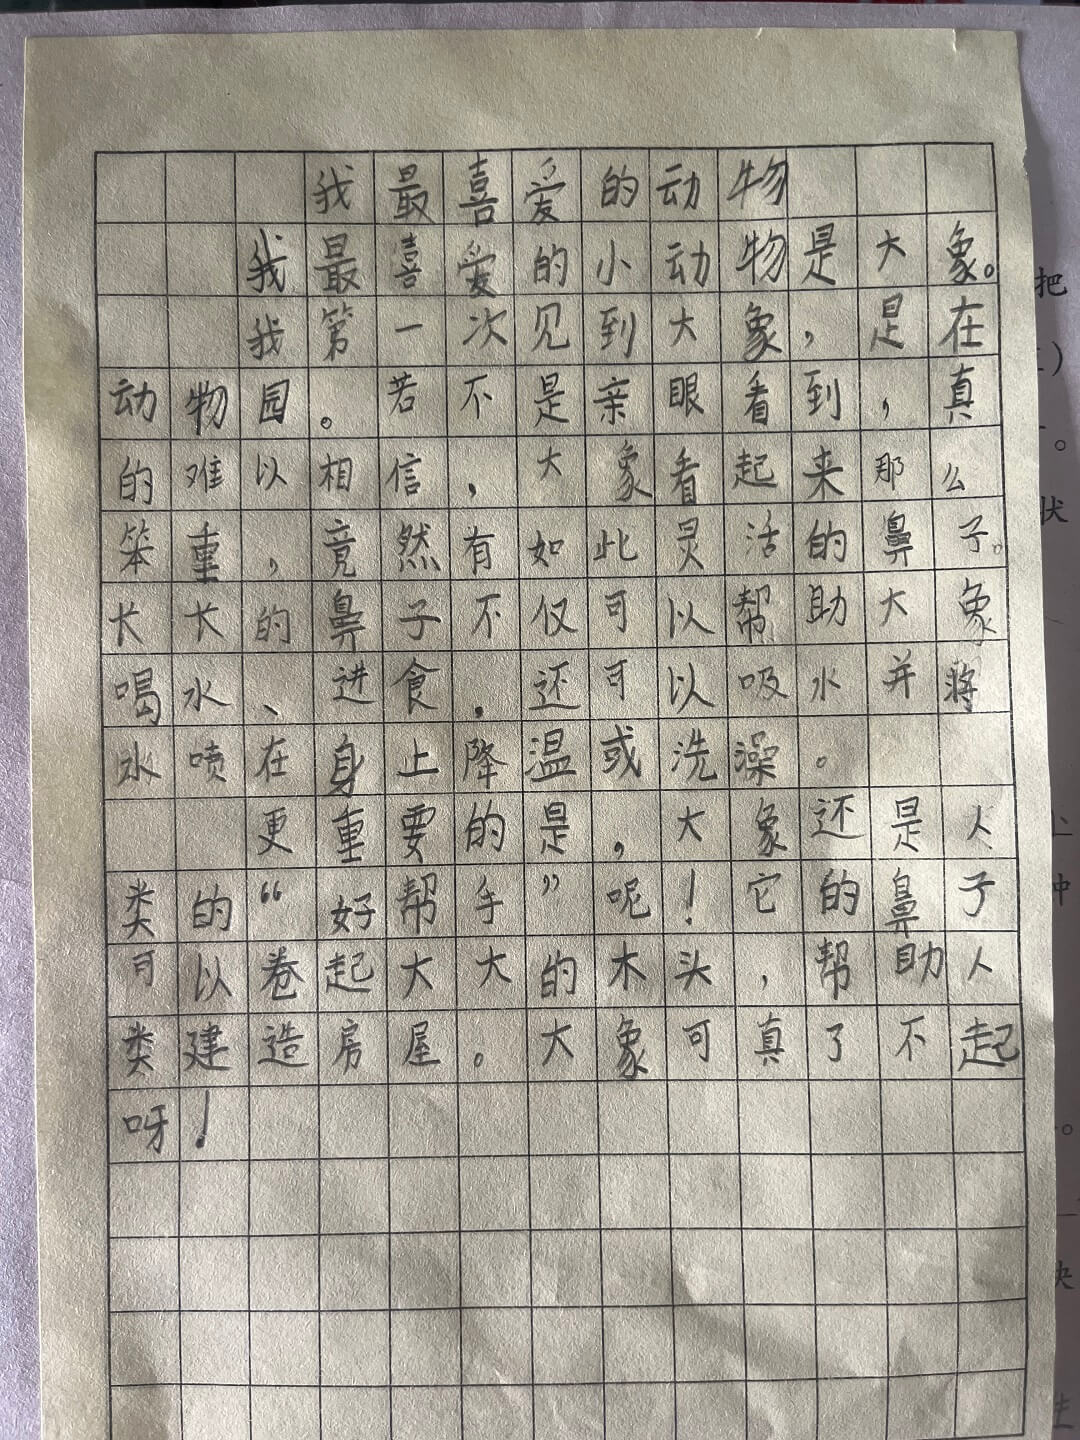 我最喜爱的动物
我最喜爱的小动物是大象。
我第一次见到大象，是在
动物园。若不是亲眼看到，真
的难以相信，大象看起来那么
笨重，竟然有如此灵活的鼻子。
长长的鼻子不仅可以帮助大象
喝水、进食，还可以吸水并将
水喷在身上降温或洗澡。
更重要的是，大象还是人
类的“好帮手”呢！它的鼻子
可以卷起大大的木头，帮助人
类建造房屋。大象可真了不起
呀！
把
状